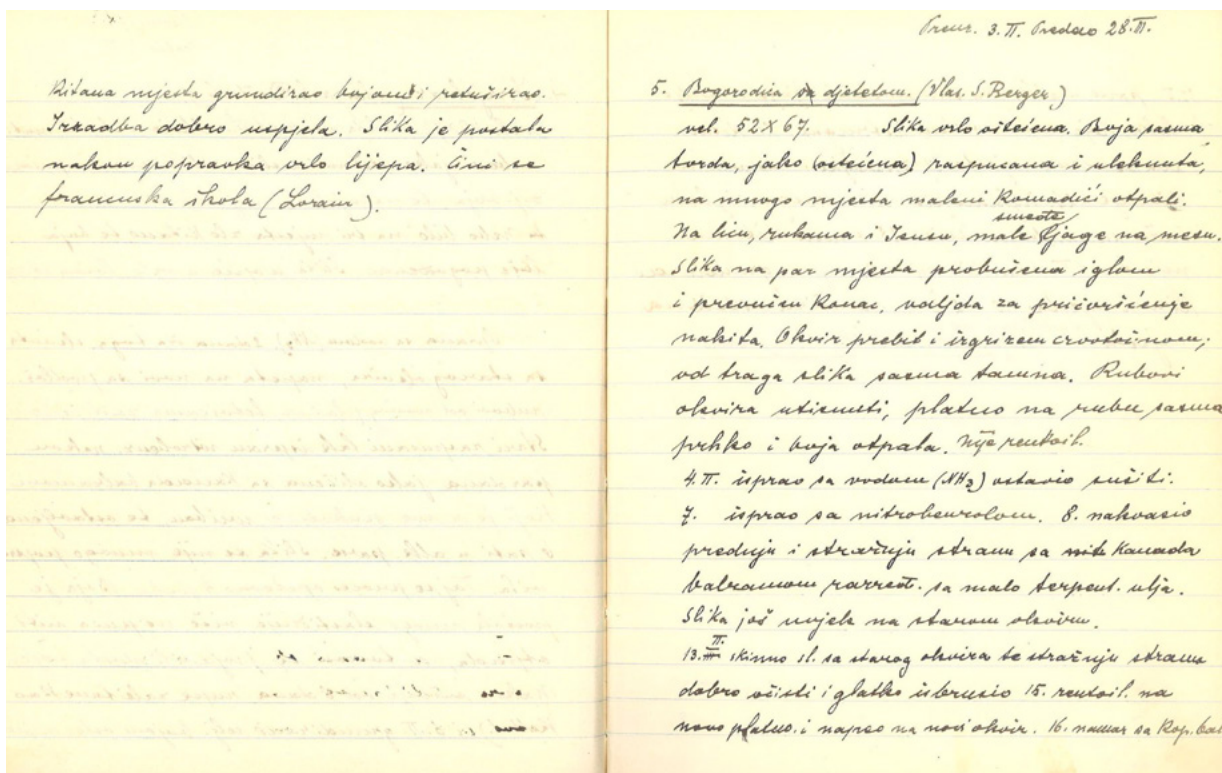 Kitana mjesta grundirao bojom i retuširao.
Izradba dobro uspjela. Slika je postala
nakon popravka vrlo lijepa. Čini se
francuska škola (Lorain).
Preuz. 3.II. Predao 28.II.
5. Bogorodica sa djetetom. (Vlas. S. Berger.)
vel. 52X67. Slika vrlo oštećena. Boja sasma
tvrda, jako (oštećena) raspucana i uleknuta,
na mnogo mjesta maleni komadići otpali.
Na licu, rukama i Isusu, male smeđe pjage na mesu.
Slika na par mjesta probušena iglom
i prevučen konac, valjda za pričvršćenje
nakita. Okvir prebit i izgrizen crvotočinom,
od traga slika sasma tamna. Rubovi
okvira utisnuti, platno na rubu sasma
prhko i boja otpala. Nije rentoil.
4.II. isprao sa vodom (NH3) ostavio sušiti.
7. isprao sa nitrobenzolom. 8. nakvasio
prednju i stražnju stranu sa Kanada
balzamom razređ. sa malo terpent. ulja.
Slika još uvjek na starom okviru.
13. II. skinuo sl. sa starog okvira te stražnju stranu
dobro očisti i glatko izbrusio 15. rentoil. na
novo platno i napeo na novi okvir. 16. namaz sa Kop. bal